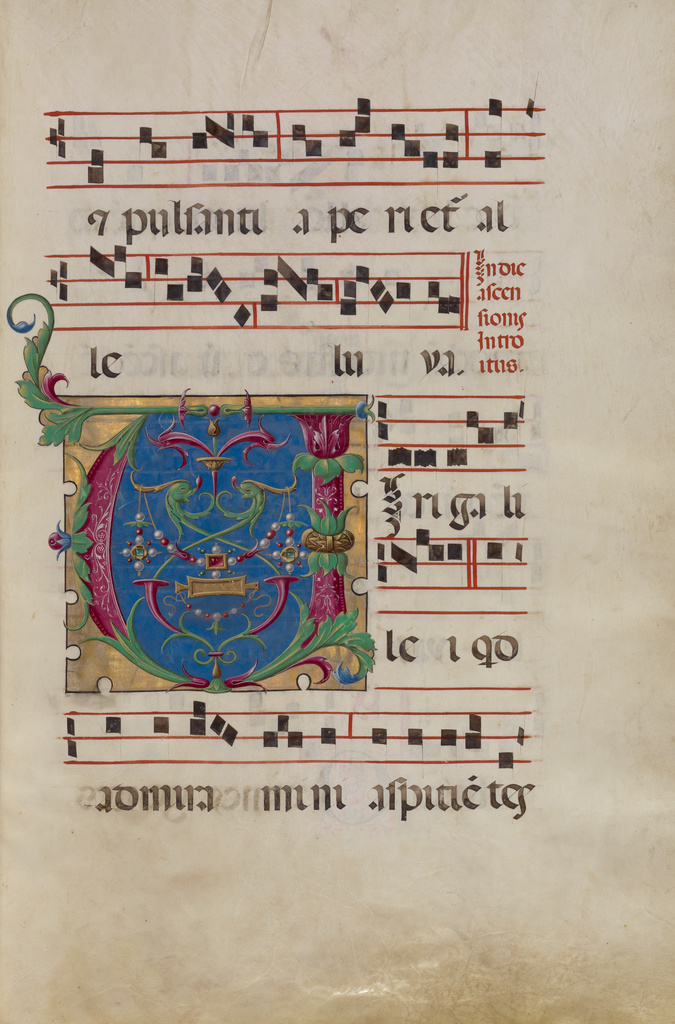 ⁊ pulsanti a pe ri et᷑ al
le lu ya.
In die
ascen
sionis
Intro
itus.
Viri ga li
le i qd
admira mini aspiciētes